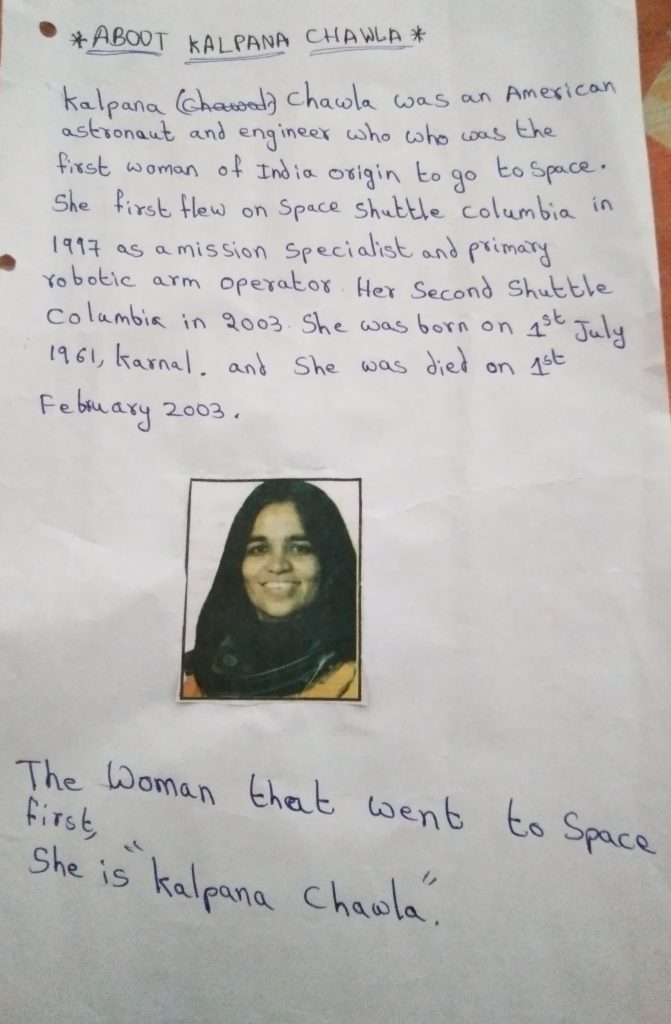 *ABOOT KALPANA CHAWLA*
Kalpana (Chawal) Chawla was an American
astronaut and engineer who who was the
first woman of India origin to go to space.
She first flew on Space Shuttle Columbia in
1997 as a mission specialist and primary
robotic arm operator. Her Second Shuttle
Columbia in 2003. She was born on 1st July
1961, Karnal. and She was died on 1st
February 2003.
The Woman that went to Space
first,
She is "Kalpana Chawla".